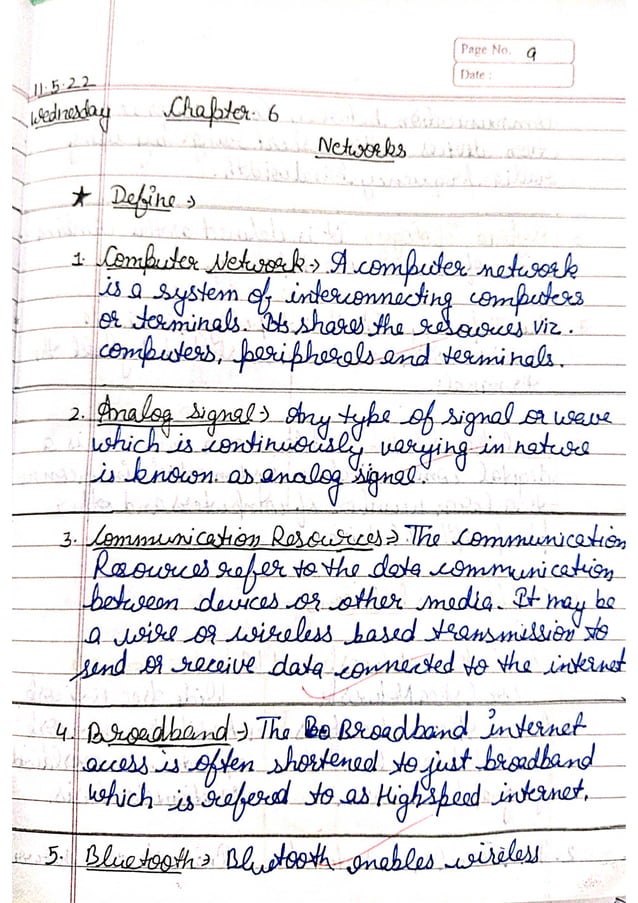 Page No. 9
Date :
11.5.22
Wednesday Chapter. 6
Networks
★ Define →
1. Computer Network → A computer network
is a system of interconnecting computers
or terminals. Its shares the resources viz.
computers, peripherals and terminals.
2. Analog signal → Any type of signal or wave
which is continuously varying in nature
is known. as analog signal.
3. Communication Resources → The communication
Resources refer to the data communication
between devices or other media. It may be
a wire or wireless based transmission to
send or receive data connected to the internet
4. Broadband → The Bo Broadband internet
access is often shortened to just broadband
which is refered to as Highspeed internet.
5. Bluetooth → Bluetooth enables wireless